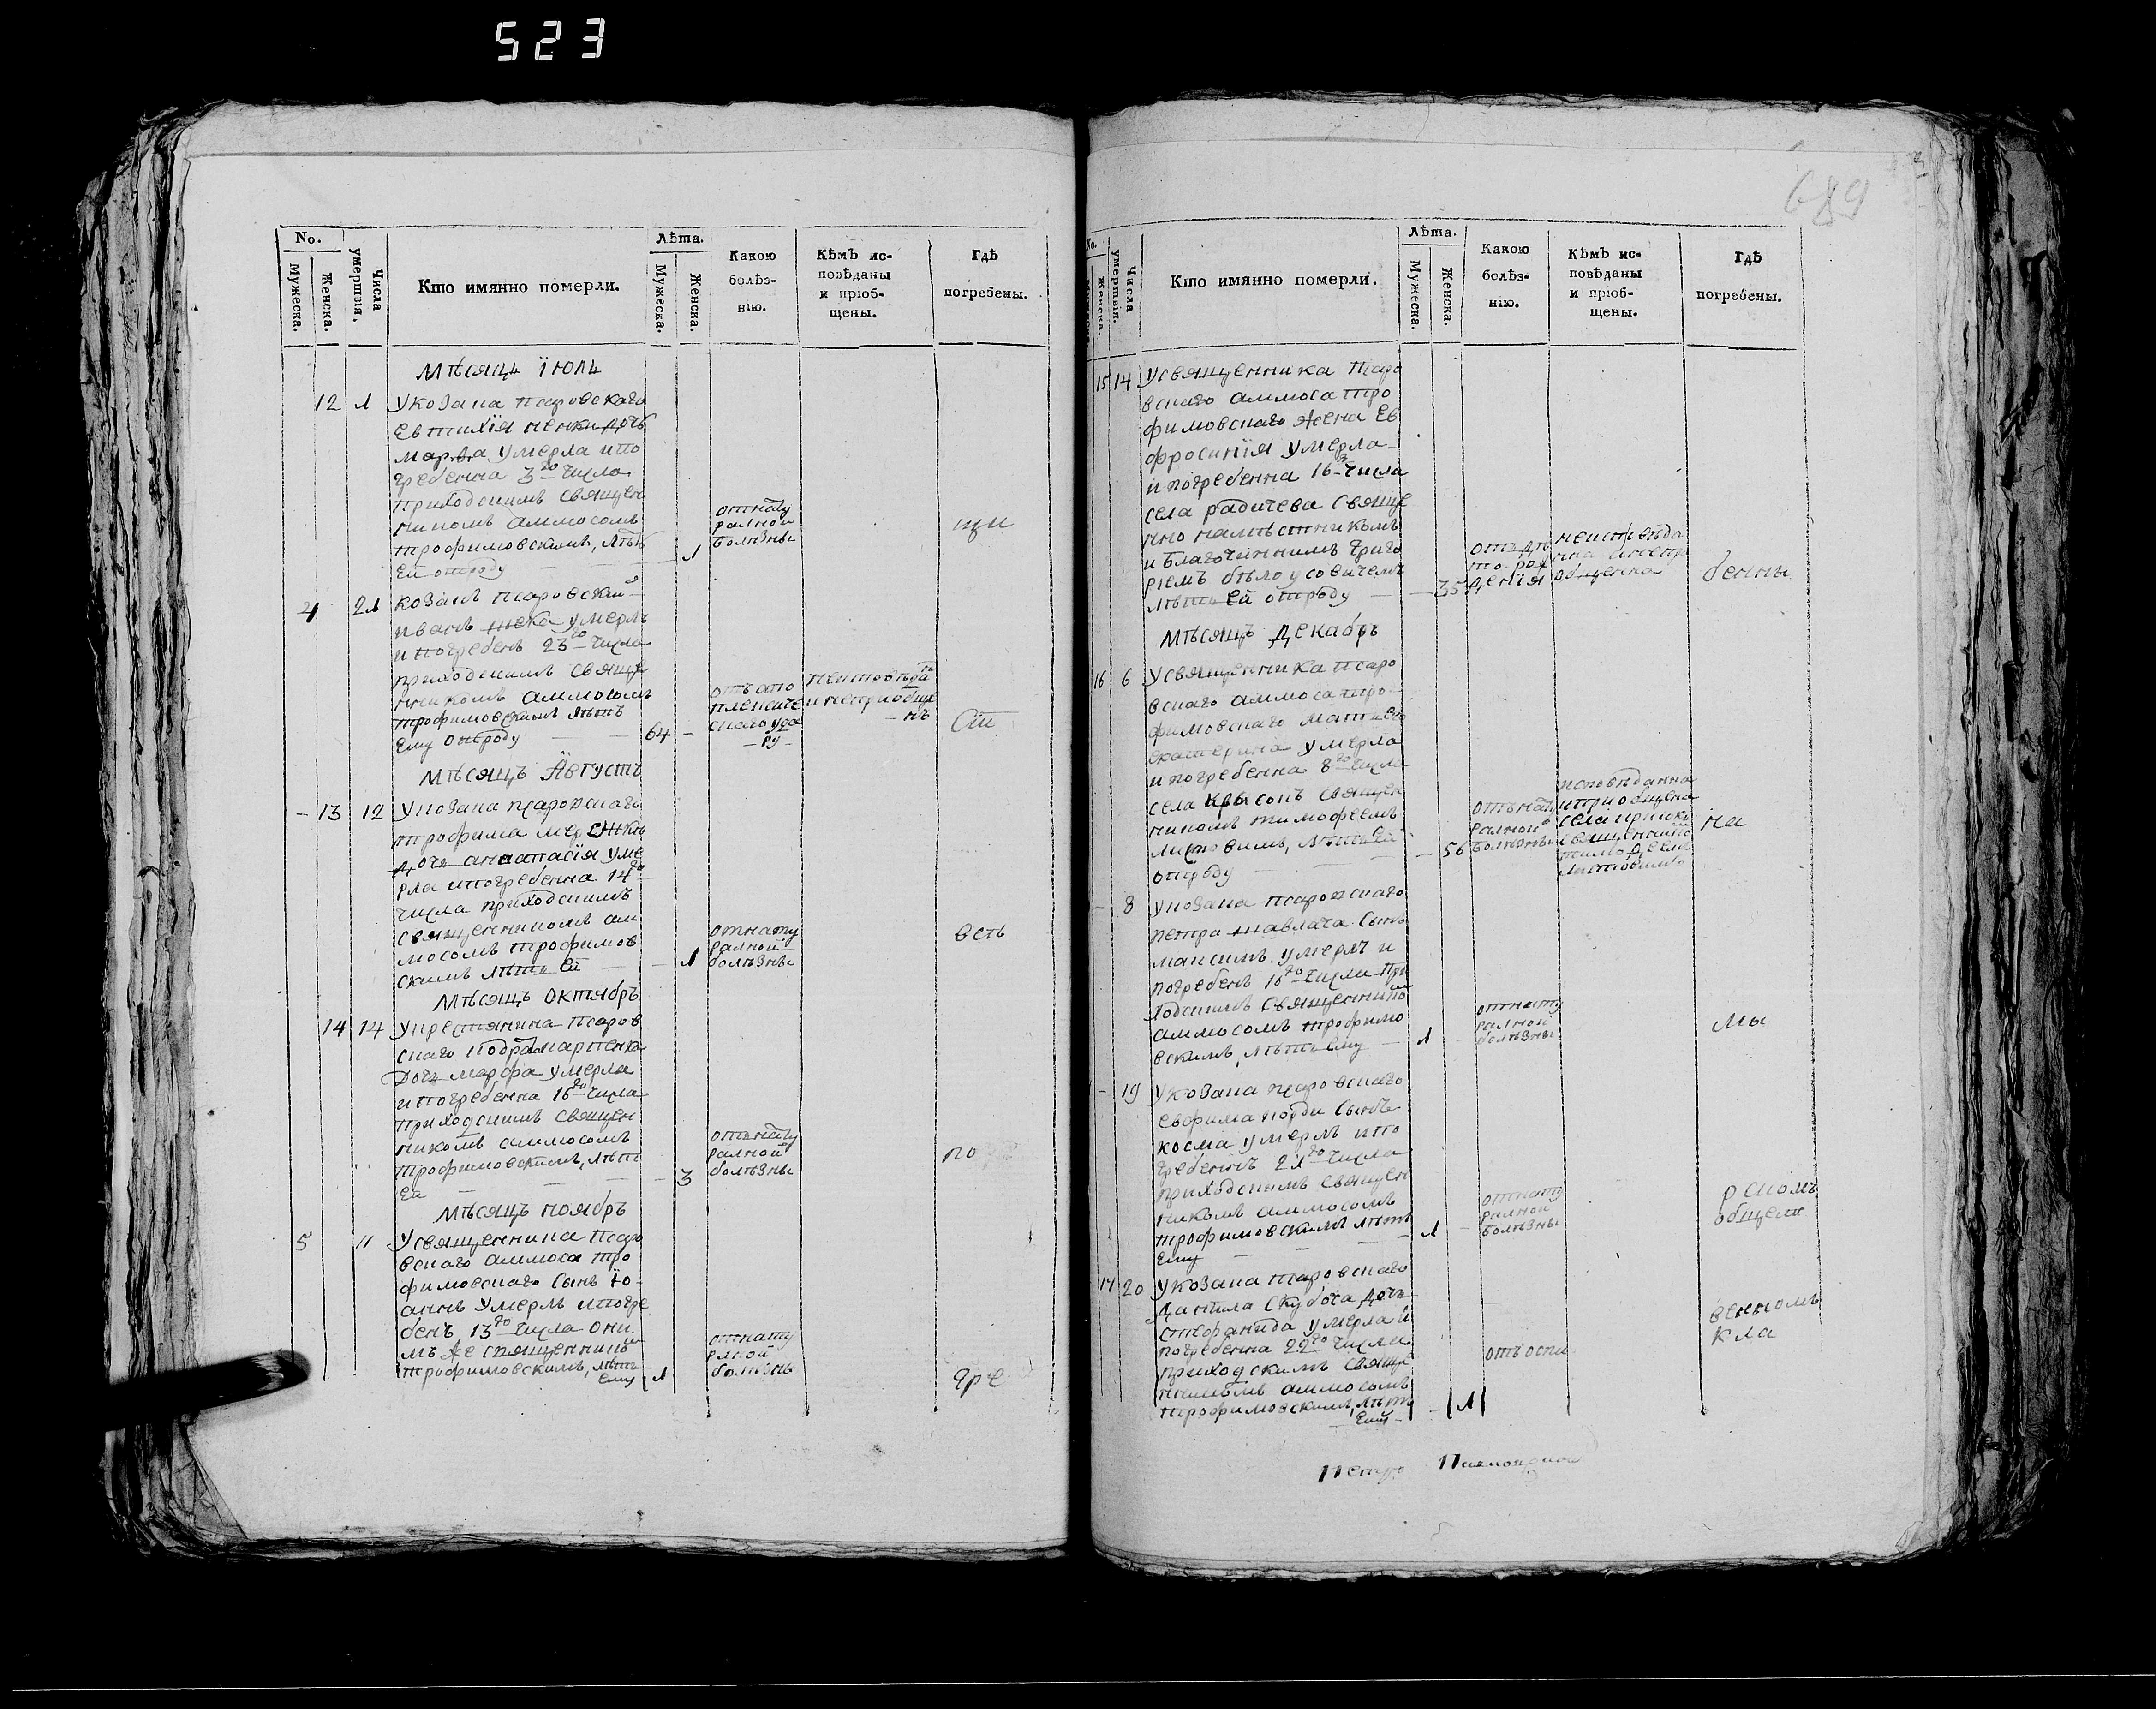 523
689
No.
Мужеска.
Женска.
Числа умертвія.
Кто имянно померли.
Лѣта.
Мужеска.
Женска.
Какою
болѣз-
нію.
Кѣмъ ис-
повѣданы
и пріоб-
щены.
Гдѣ
погребены.
Мѣсяцъ Іюль
12 1 У козака псаровскаго
Евтихія дочь
марѳа умерла и по
гребенна 3го числа
приходскимъ священ
никомъ аммосомъ
трофимовскимъ, лѣтъ
ей отроду 1
отнату
ралной
болѣзны
4 21 козакъ псаровскій
иванъ умеръ
и погребенъ 23го числа
приходскимъ свяще
нникомъ аммосомъ
трофимовскимъ лѣтъ
ему отроду 64
отъ апо
плексиче
скаго уда
ру
Мѣсяцъ Августъ
13 12 У козака псаровскаго
трофима
дочь анастасія уме
рла и погребенна 14го
числа приходскимъ
священникомъ ам
мосомъ трофимов
скимъ лѣтъ ей 1
отнату
ралной
болѣзны
есть
Мѣсяцъ Октябрь
14 14 У крестянина псаров
скаго
дочь марфа умерла
и погребенна 16го числа
приходскимъ священ
никомъ аммосомъ
трофимовскимъ, лѣтъ
ей 3
отънату
ралной
болѣзны
по
Мѣсяцъ ноябрь
5 11 У священника псаро
вскаго аммоса тро
фимовскаго сынъ Іо-
аннъ умеръ и погре
бенъ 13го числа они
мъ же священником
трофимовскимъ, лѣтъ
ему 1
отнату
ралной
болѣзнъ
гре
No.
Женска.
Числа умертвія.
Кто имянно померли.
Лѣта.
Мужеска.
Женска.
Какою
болѣз-
нію.
Кѣмъ ис-
повѣданы
и пріоб-
щены.
Гдѣ
погребены.
15 14 У священника псаро
вскаго аммоса тро
фимовскаго жена Ев
фросинія умерла
и погребенна 16 числа
села радичева свяще
нно намѣстникомъ
и благочиннимъ григо
ріемъ
лѣтъ ей отроду 35
бенны
Мѣсяцъ Декабрь
16 6 У священника псаро
вскаго аммоса тро-
фимовскаго мати
екатерина умерла
и погребенна 8го числа
села священ
никомъ тимофеемъ
листовимъ, лѣтъ ей
отроду 56
отънату
ралной
болѣзны
исповѣданна
и приобщена
села
священником
тимофеемъ
листовимъ
на
8 У козака псаровскаго
петра сынъ
максимъ умеръ и
погребенъ 10го числа при
ходскимъ священником
аммосомъ трофимо
вскимъ, лѣтъ ему 1
отнату
ралной
болѣзны
мы
19 У козака псаровскаго
ефима сынъ
косма умеръ и по
гребеннъ 21го числа
приходскимъ священ
никомъ аммосомъ
трофимовскимъ лѣтъ
ему 1
отнату
ралной
болѣзны
рскомъ
общест
17 20 У козака псаровскаго
данила дочь
стефанида умерла и
погребенна 22го числа
приходскимъ свяще
нникомъ аммосомъ
трофимовскимъ, лѣтъ
1
отъ оспи
венномъ
кла